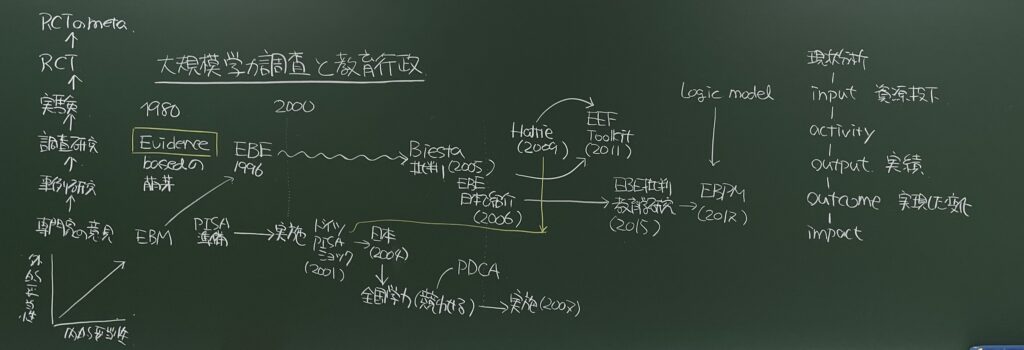 RCTのmeta.
RCT
実験
調査研究
事例研究
専門家の意見
外的妥当性
内的妥当性
大規模学力調査と教育行政
1980
2000
Evidence
based の
萌芽
EBE
1996
EBM
PISA
準備
実施
ドイツ
PISA
ショック
(2001)
日本
(2004)
全国学力(競争)
PDCA
実施(2007)
Biesta
批判(2005)
EBE
日本で紹介
(2006)
Hattie
(2009)
EEF
Toolkit
(2011)
EBE批判
教育研究
(2015)
Logic model
EBPM
(2017)
現状分析
input 資源投下
activity
output 実績
outcome
impact